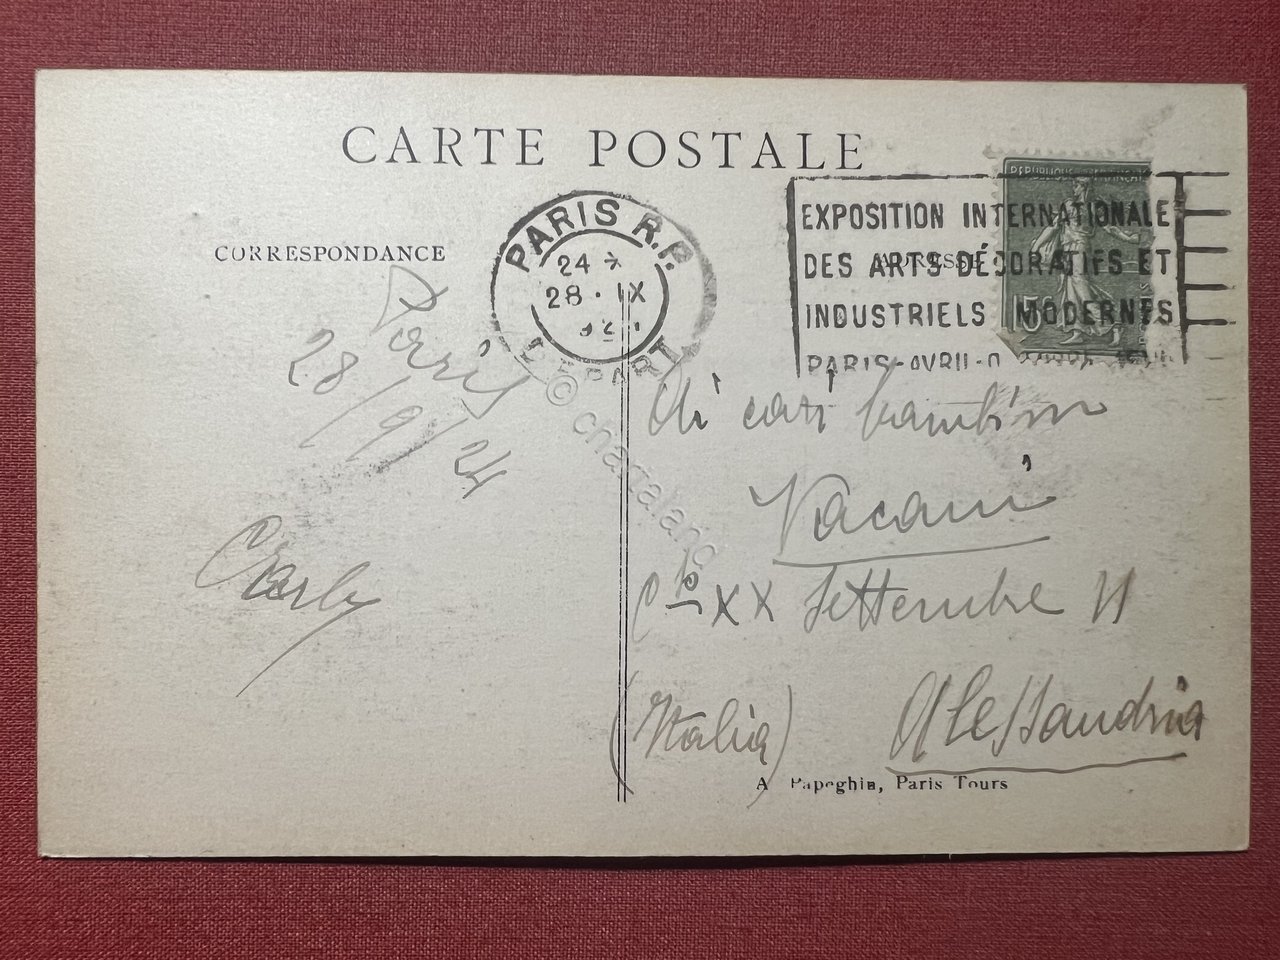 CARTE POSTALE
CORRESPONDANCE
PARIS R.P.
24
28 · IX
DÉPART
RÉPUBLIQUE FRANÇAISE
15c
EXPOSITION INTERNATIONALE
DES ARTS DÉCORATIFS ET
INDUSTRIELS MODERNES
PARIS-AVRIL-O
ADRESSE
Paris
28/9/24
Ai cari bambini
Vacani
C so XX Settembre 11
(Italia) Alessandria
A Papeghin, Paris Tours
© chartaland